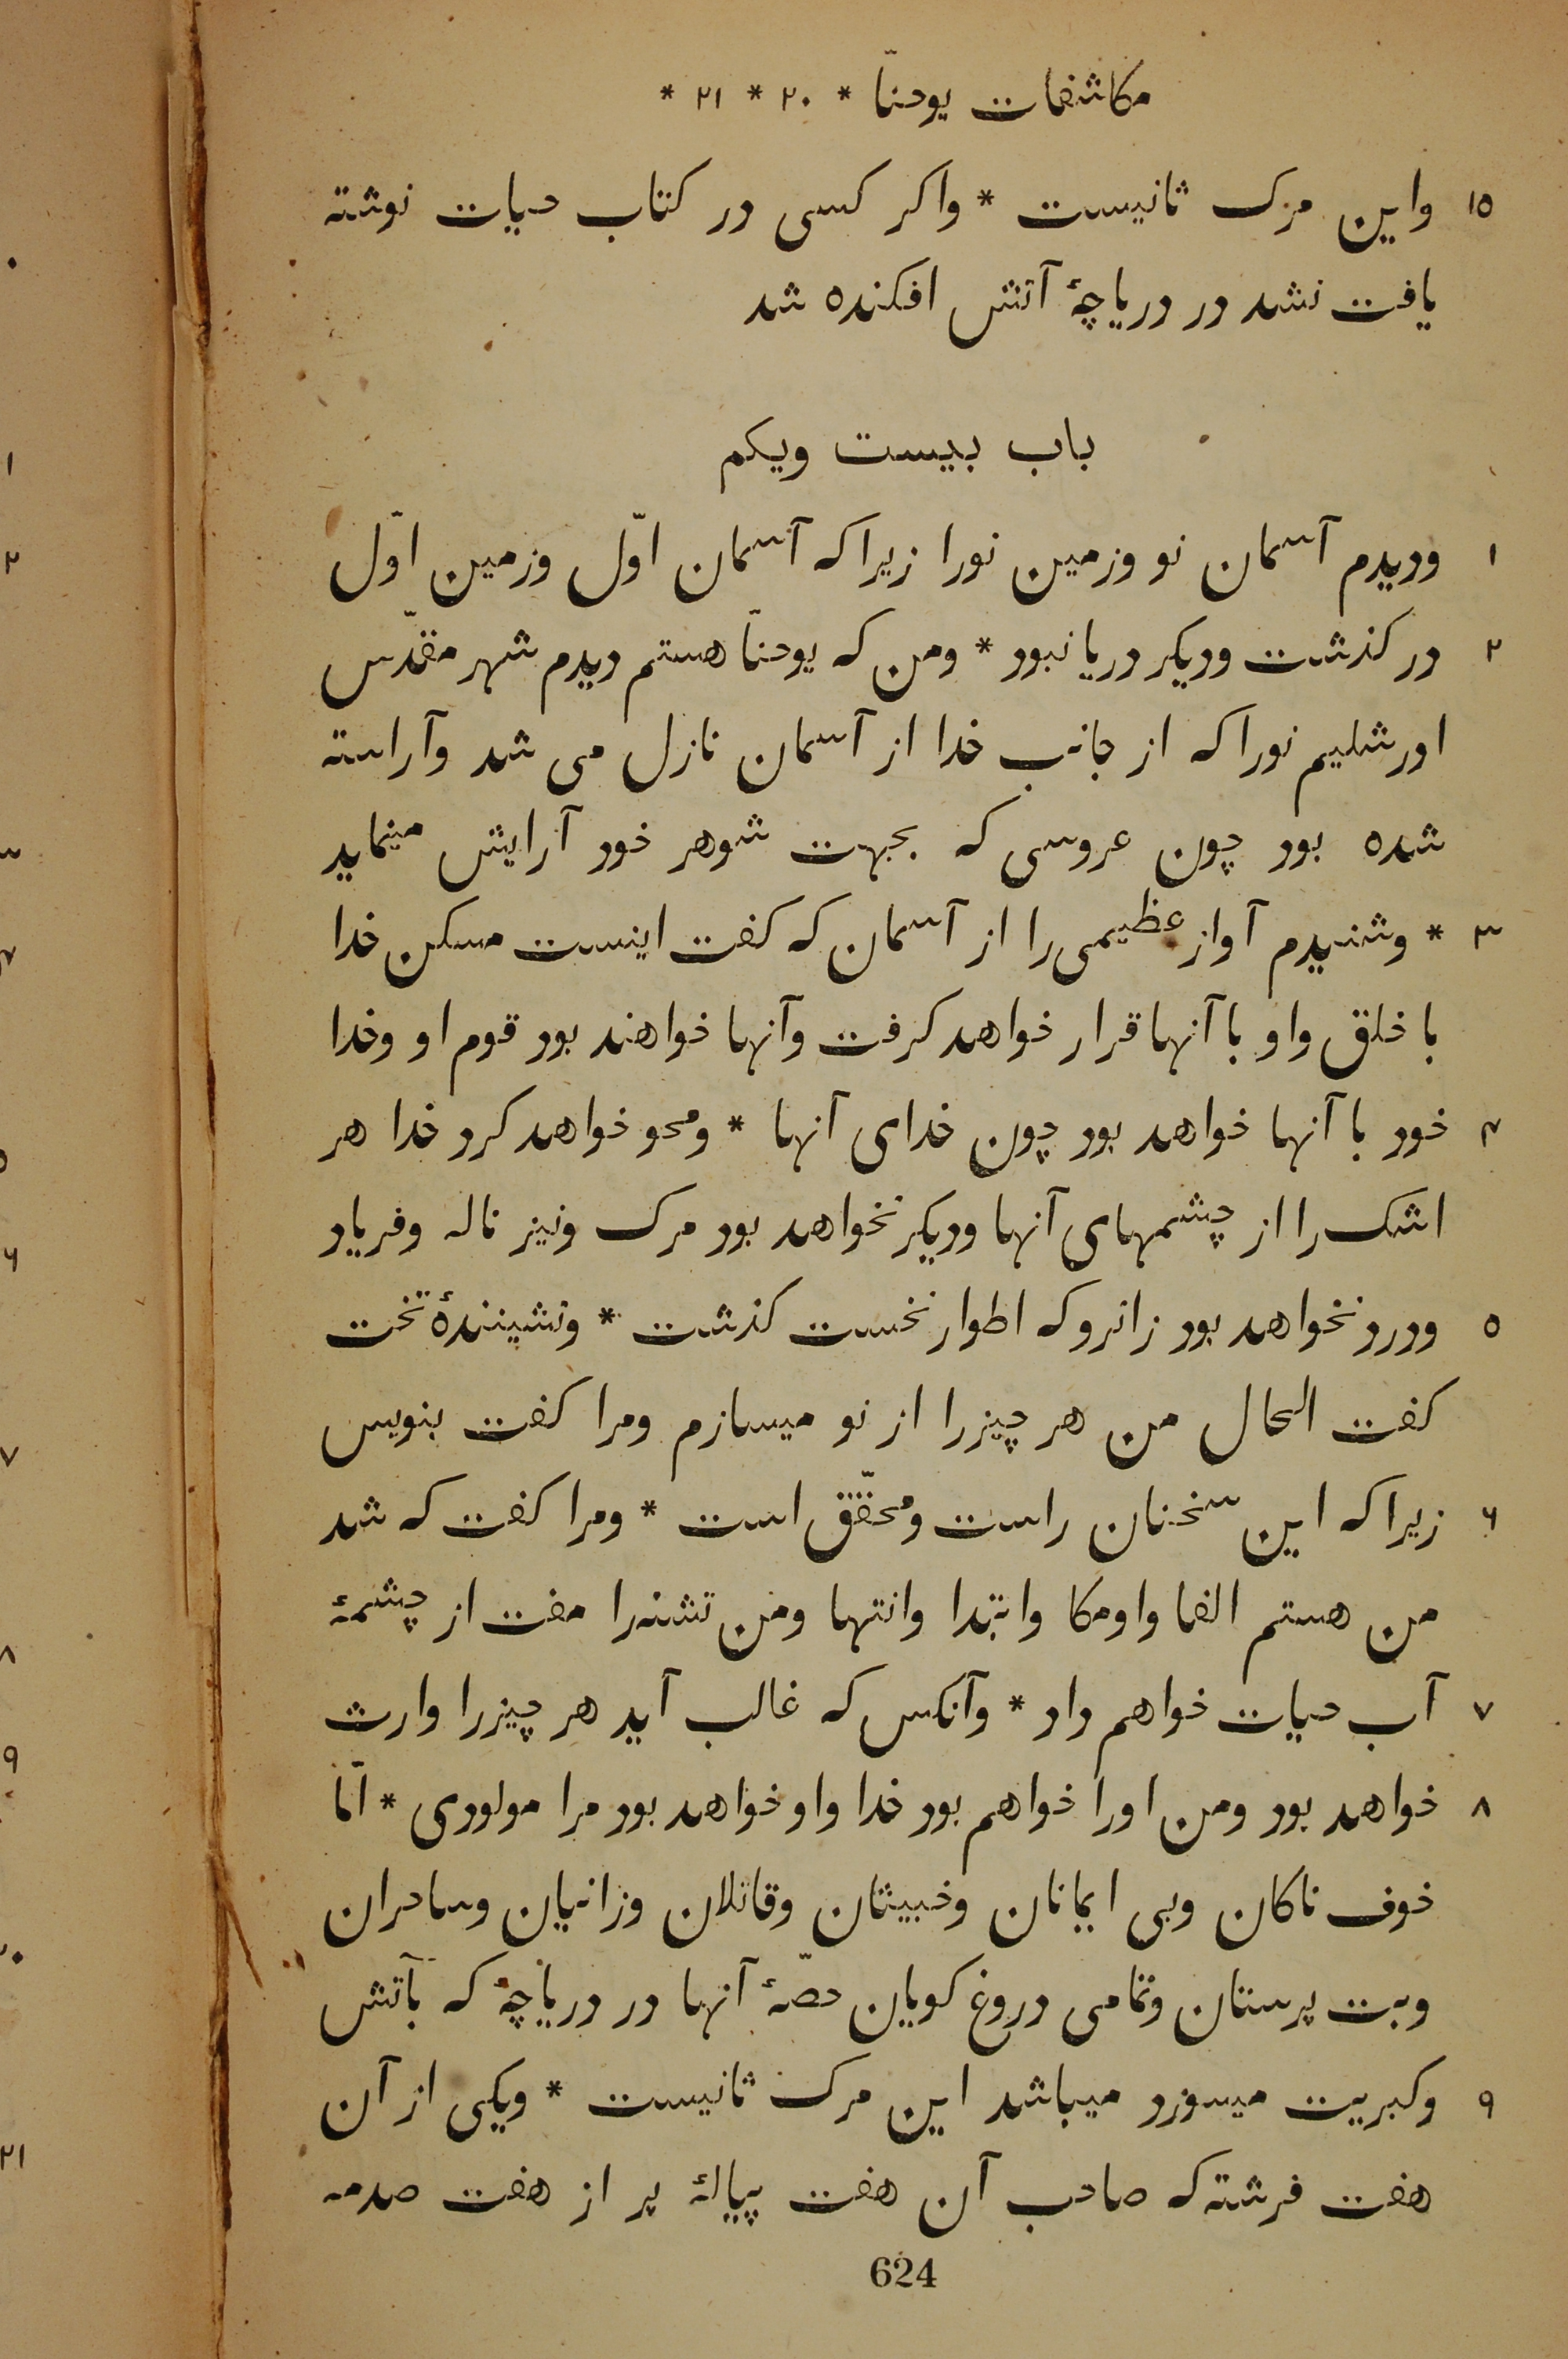 مکاشفات یوحنّا * ۲۰ * ۲۱ *
۱۵ واین مرک ثانیست * واکر کسی در کتاب حیات نوشته
یافت نشد در دریاچهٔ آتش افکنده شد
باب بیست ویکم
۱ ودیدم آسمان نو وزمین نورا زیرا که آسمان اوّل وزمین اوّل
۲ در کذشت ودیکر دریا نبود * ومن که یوحنّا هستم دیدم شهر مقدّس
اورشلیم نورا که از جانب خدا از آسمان نازل می شد وآراسته
شده بود چون عروسی که بجهت شوهر خود آرایش مینماید
۳ * وشنیدم آواز عظیمی را از آسمان که کفت اینست مسکن خدا
با خلق واو با آنها قرار خواهد کرفت وآنها خواهند بود قوم او وخدا
۴ خود با آنها خواهد بود چون خدای آنها * ومحو خواهد کرد خدا هر
اشک را از چشمهای آنها ودیکر نخواهد بود مرک ونیز ناله وفریاد
۵ ودرد نخواهد بود زانرو که اطوار نخست کذشت * ونشینندهٔ تخت
کفت الحال من هر چیزرا از نو میسازم ومرا کفت بنویس
۶ زیرا که این سخنان راست ومحقّق است * ومرا کفت که شد
من هستم الفا واومکا وابتدا وانتها ومن تشنهرا مفت از چشمهٔ
۷ آب حیات خواهم داد * وآنکس که غالب آید هر چیزرا وارث
۸ خواهد بود ومن اورا خواهم بود خدا واو خواهد بود مرا مولودی * امّا
خوف ناکان وبی ایمانان وخبیثان وقاتلان وزانیان وساحران
وبت پرستان وتمامی دروغ کویان حصّهٔ آنها در دریاچهٔ که بآتش
۹ وکبریت میسوزد میباشد این مرک ثانیست * ویکی از آن
هفت فرشته که صاحب آن هفت پیالهٔ پر از هفت صدمه
624